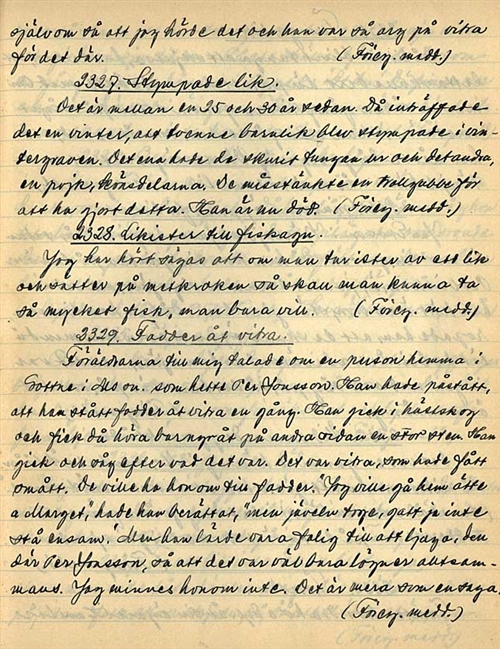 själv om så att jag hörde det och han var så arg på vitra
för det där. (Föreg. medd.)
2327. Stympade lik.
Det är mellan en 25 och 30 år sedan. Då inträffade
det en vinter, att tvenne barnlik blev stympade i vin-
tergraven. Det ena hade de skurit tungan ur och det andra,
en pojk, könsdelarna. De misstänkte en trollgubbe för
att ha gjort detta. Han är nu död. (Föreg. medd.)
2328. Likister till fiskagn.
Jag har hört sägas att om man tar ister av ett lik
och sätter på metkroken så skall man kunna ta
så mycket fisk, man bara vill. (Föreg. medd.)
2329. Fadder åt vitra.
Föräldrarna till mig talade om en person hemma i
Gottne i Mo sn. som hette Per Jonsson. Han hade påstått,
att han stått fadder åt vitra en gång. Han gick i hästskog
och fick då höra barngråt på andra sidan en stor sten. Han
gick och såg efter vad det var. Det var vitra, som hade fått
smått. De ville ha honom till fadder. "Jag ville gå hem ätte
a Marget", hade han berättat, "men jäveln toge, gatt ja inte
stå ensam." Men han lärde vara falig till att ljuga, den
där Per Jonsson, så att det var väl bara lögner alltsam-
mans. Jag minnes honom inte. Det är mera som en saga.
(Föreg. medd.)